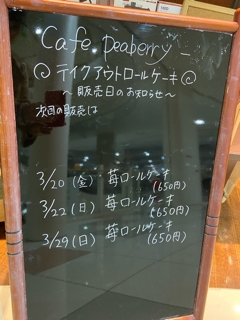 Cafe peaberry
テイクアウトロールケーキ
～販売日のお知らせ～
次回の販売は
3/20（金）・苺ロールケーキ
（650円）
3/22（日）苺ロールケーキ
（650円）
3/29（日）苺ロールケーキ
（650円）